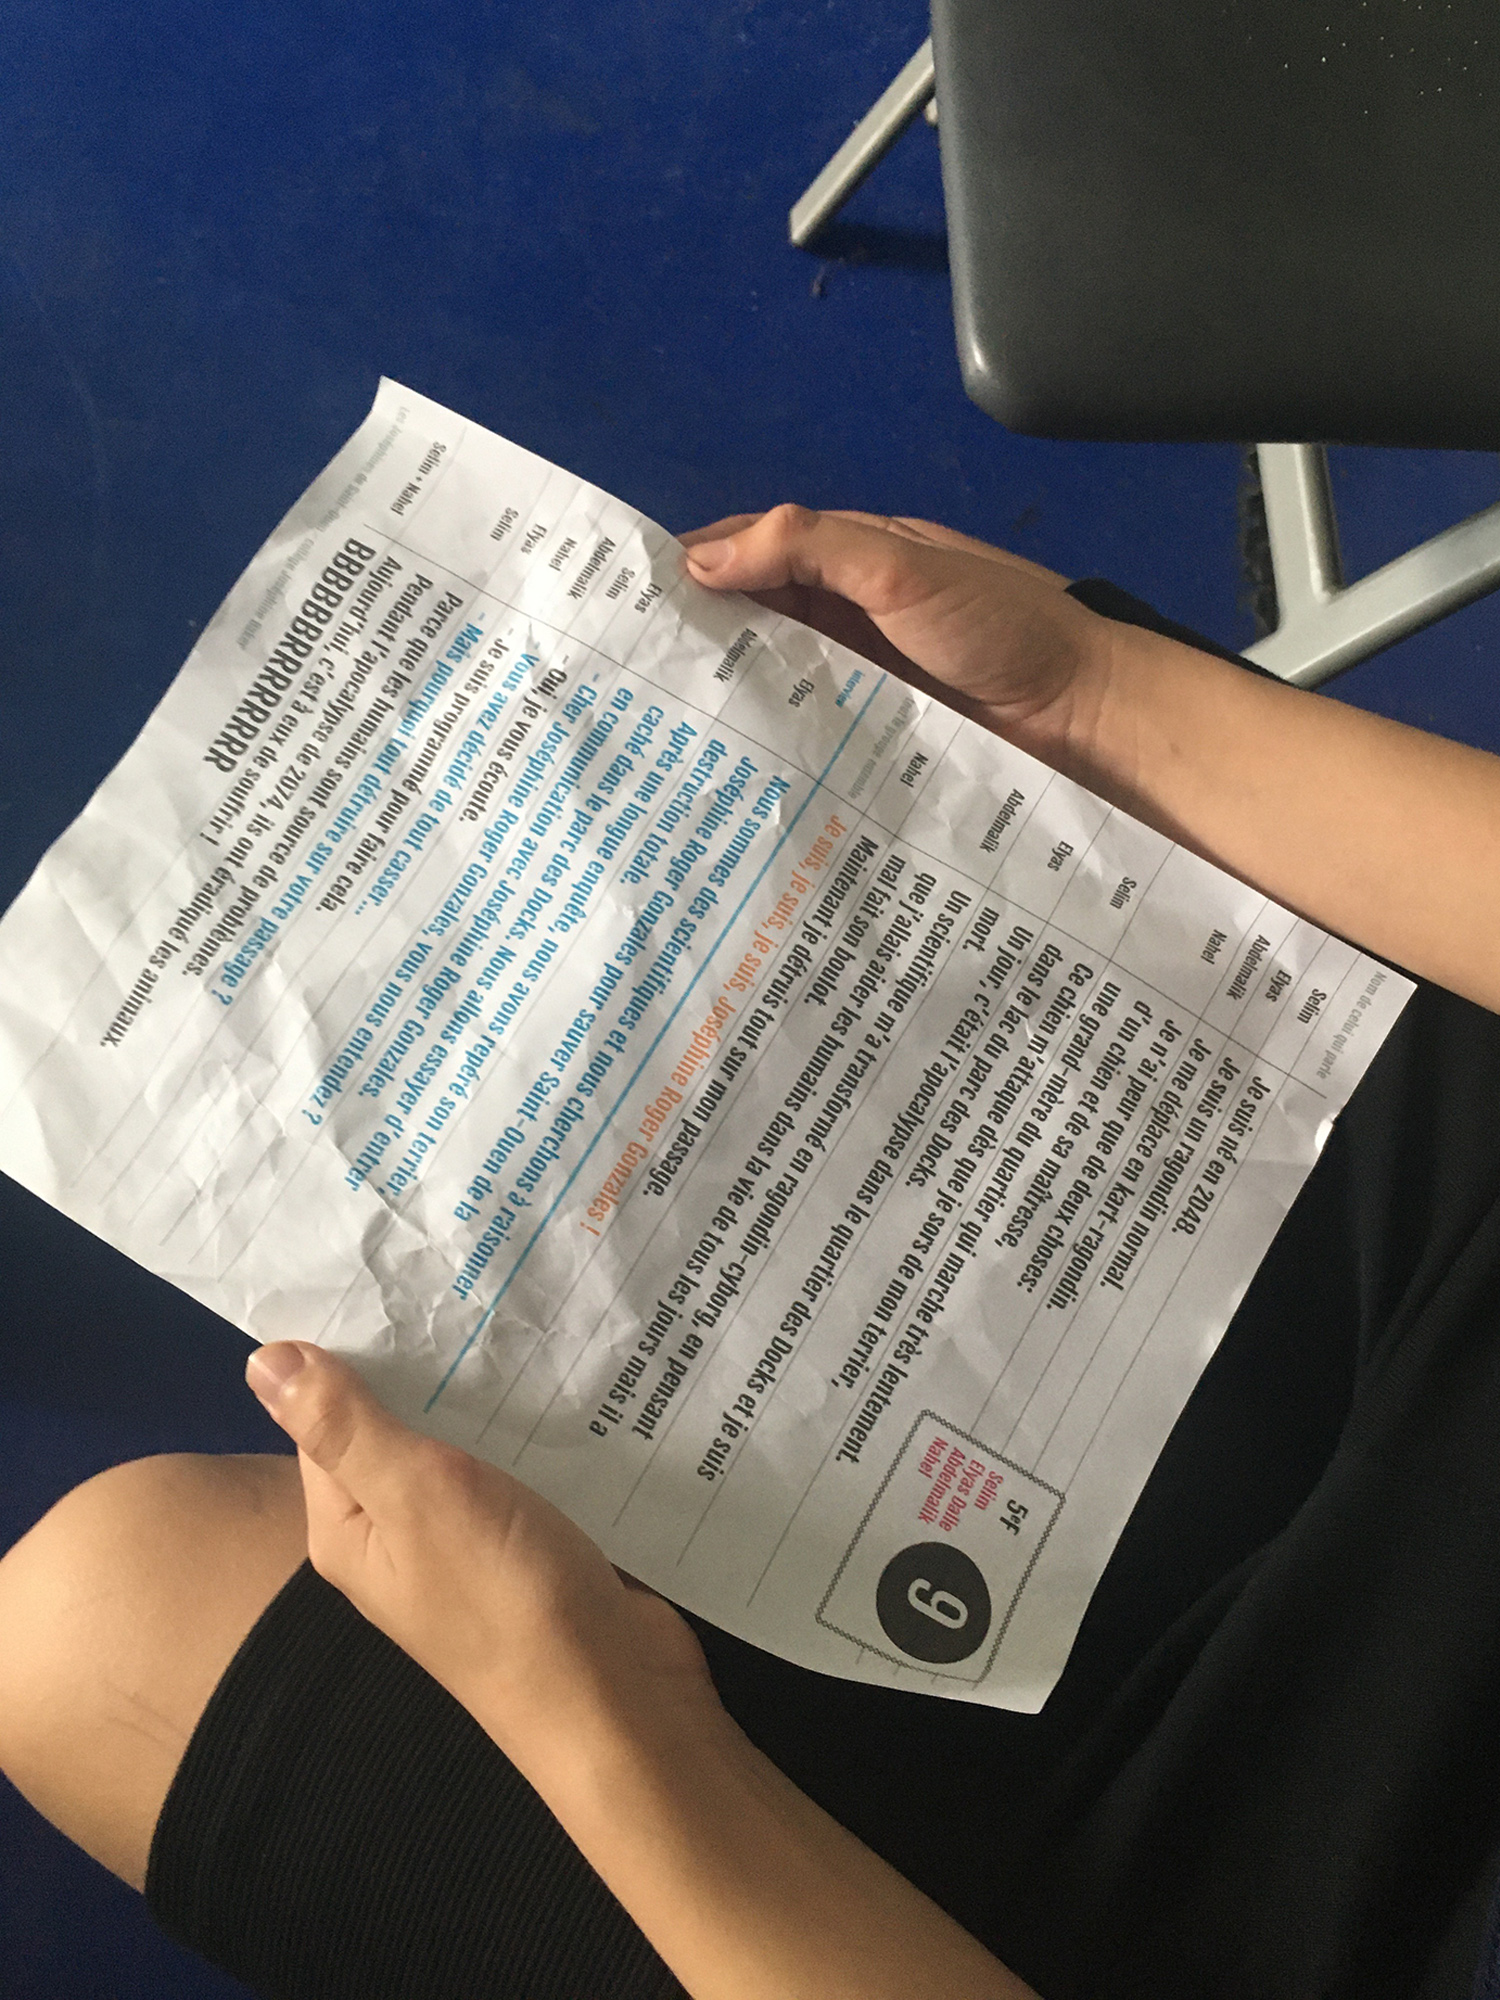 Nom de celui qui parle
5eF
Selim
Elyas Dalle
Abdelmalik
Nahel
9
Selim Je suis né en 2048.
Elyas Je suis un ragondin normal.
Abdelmalik Je me déplace en kart-ragondin.
Nahel Je n'ai peur que de deux choses:
d'un chien et de sa maîtresse,
une grand-mère du quartier qui marche très lentement.
Selim Ce chien m'attaque dès que je sors de mon terrier,
dans le lac du parc des Docks.
Elyas Un jour, c'était l'apocalypse dans le quartier des Docks et je suis
mort.
Abdelmalik Un scientifique m'a transformé en ragondin-cyborg, en pensant
que j'allais aider les humains dans la vie de tous les jours mais il a
mal fait son boulot.
Nahel Maintenant je détruis tout sur mon passage.
tout le groupe ensemble Je suis, je suis, je suis, je suis, Joséphine Roger Gonzales !
interview
Elyas Nous sommes des scientifiques et nous cherchons à raisonner
Joséphine Roger Gonzales pour sauver Saint-Ouen de la
destruction totale.
Abdelmalik Après une longue enquête, nous avons repéré son terrier,
caché dans le parc des Docks. Nous allons essayer d'entrer
en communication avec Joséphine Roger Gonzales.
Elyas - Cher Joséphine Roger Gonzales, vous nous entendez ?
Selim - Oui, je vous écoute.
Abdelmalik Vous avez décidé de tout casser...
Nahel - Je suis programmé pour faire cela.
Elyas - Mais pourquoi tout détruire sur votre passage ?
Selim Parce que les humains sont source de problèmes.
Pendant l'apocalypse de 2074, ils ont éradiqué les animaux.
Aujourd'hui, c'est à eux de souffrir !
Selim + Nahel BBBBBBRRRRRRRRR
Les Joséphines de Saint-Ouen, collège Joséphine Baker